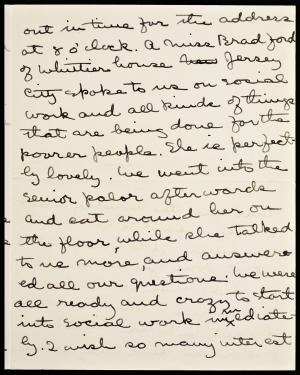 out in time for the address
at 8 o'clock. A Miss Bradford
of Whittier house Jersey
City spoke to us on social
work and all kinds of things
that are being done for the
poorer people. She is perfect-
ly lovely. We went into the
senior palor afterwards
and sat around her on
the floor, while she talked
to us more, and answer-
ed all our questions. We were
all ready and crazy to start
into social work immediate-
ly. I wish so many interest